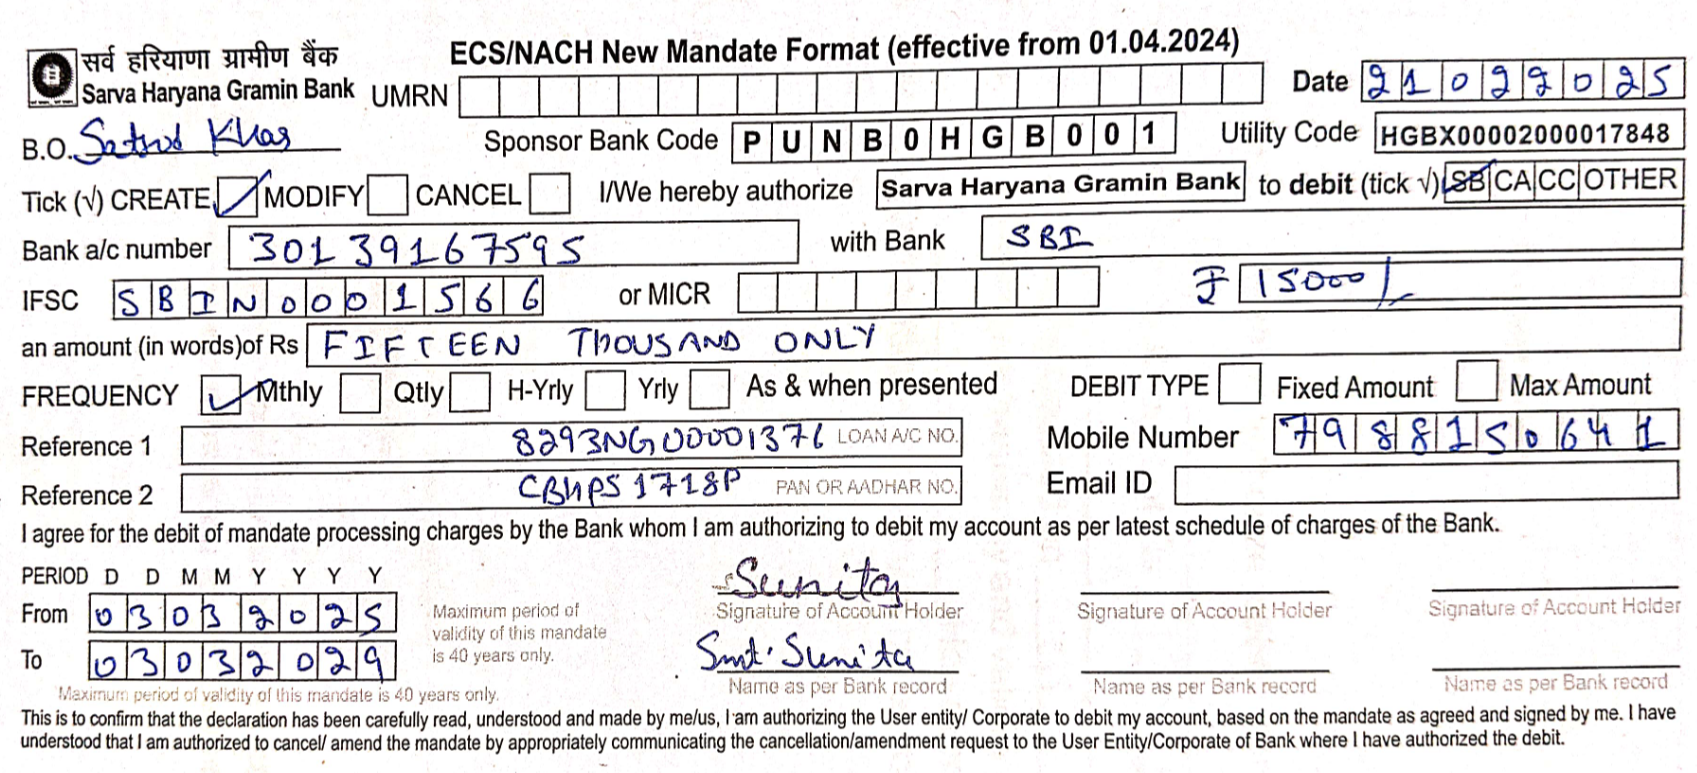 सर्व हरियाणा ग्रामीण बैंक
Sarva Haryana Gramin Bank
ECS/NACH New Mandate Format (effective from 01.04.2024)
UMRN
Date 21022025
B.O. Satrod Khas
Sponsor Bank Code PUNB0HGB001
Utility Code HGBX00002000017848
Tick (√) CREATE ✓ MODIFY CANCEL I/We hereby authorize Sarva Haryana Gramin Bank to debit (tick √) SB CA CC OTHER
Bank a/c number 30139167595 with Bank SBI
IFSC SBIN0001566 or MICR ₹ 15000/-
an amount (in words)of Rs FIFTEEN THOUSAND ONLY
FREQUENCY ✓ Mthly Qtly H-Yrly Yrly As & when presented DEBIT TYPE Fixed Amount Max Amount
Reference 1 8293NG00001376 LOAN A/C NO. Mobile Number 7988150641
Reference 2 CBHPS1718P PAN OR AADHAR NO. Email ID
I agree for the debit of mandate processing charges by the Bank whom I am authorizing to debit my account as per latest schedule of charges of the Bank.
PERIOD D D M M Y Y Y Y
From 03032025
To 03032029
Maximum period of validity of this mandate is 40 years only.
Maximum period of
validity of this mandate
is 40 years only.
Sunita
Signature of Account Holder Signature of Account Holder Signature of Account Holder
Smt. Sunita
Name as per Bank record Name as per Bank record Name as per Bank record
This is to confirm that the declaration has been carefully read, understood and made by me/us, I am authorizing the User entity/ Corporate to debit my account, based on the mandate as agreed and signed by me. I have
understood that I am authorized to cancel/ amend the mandate by appropriately communicating the cancellation/amendment request to the User Entity/Corporate of Bank where I have authorized the debit.